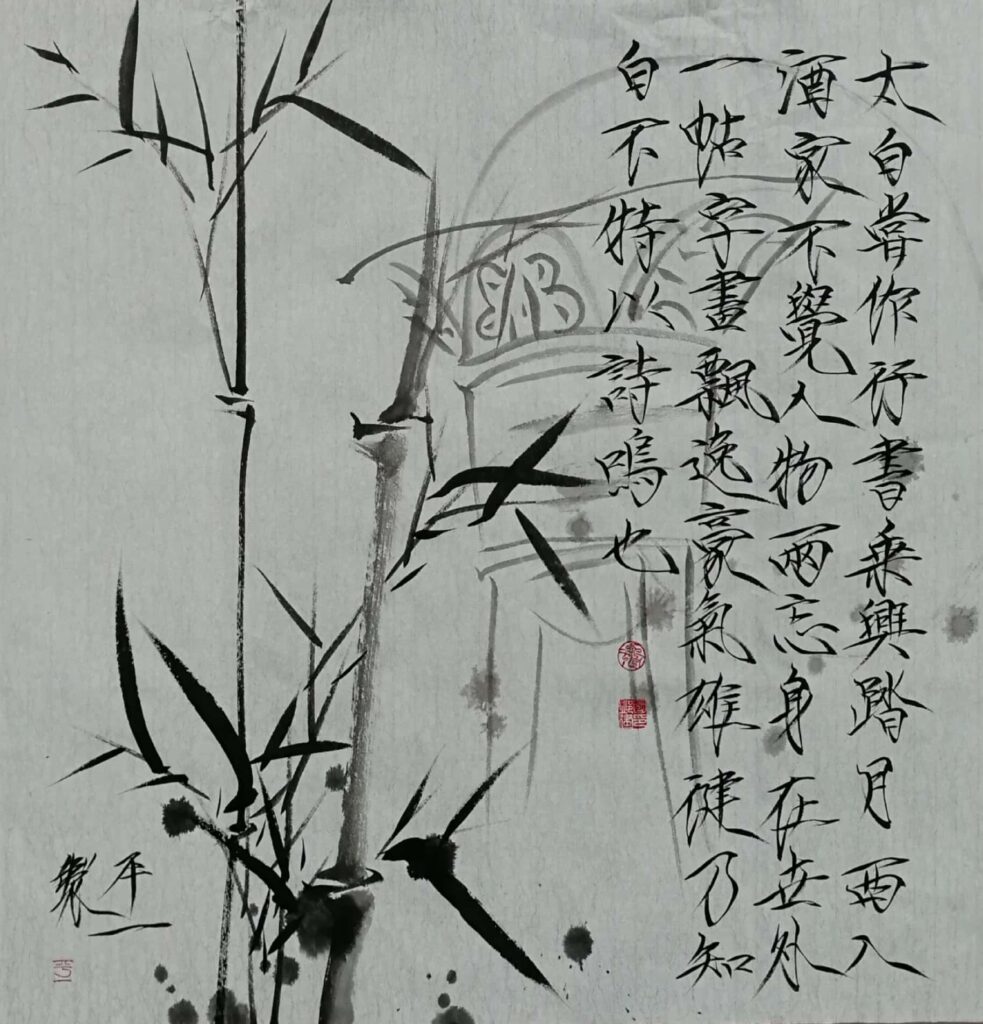 太白嘗作行書乘興踏月西入
酒家不覺人物兩忘身在世外
一帖字畫飄逸豪氣雄健乃知
白不特以詩鳴也
平一
製